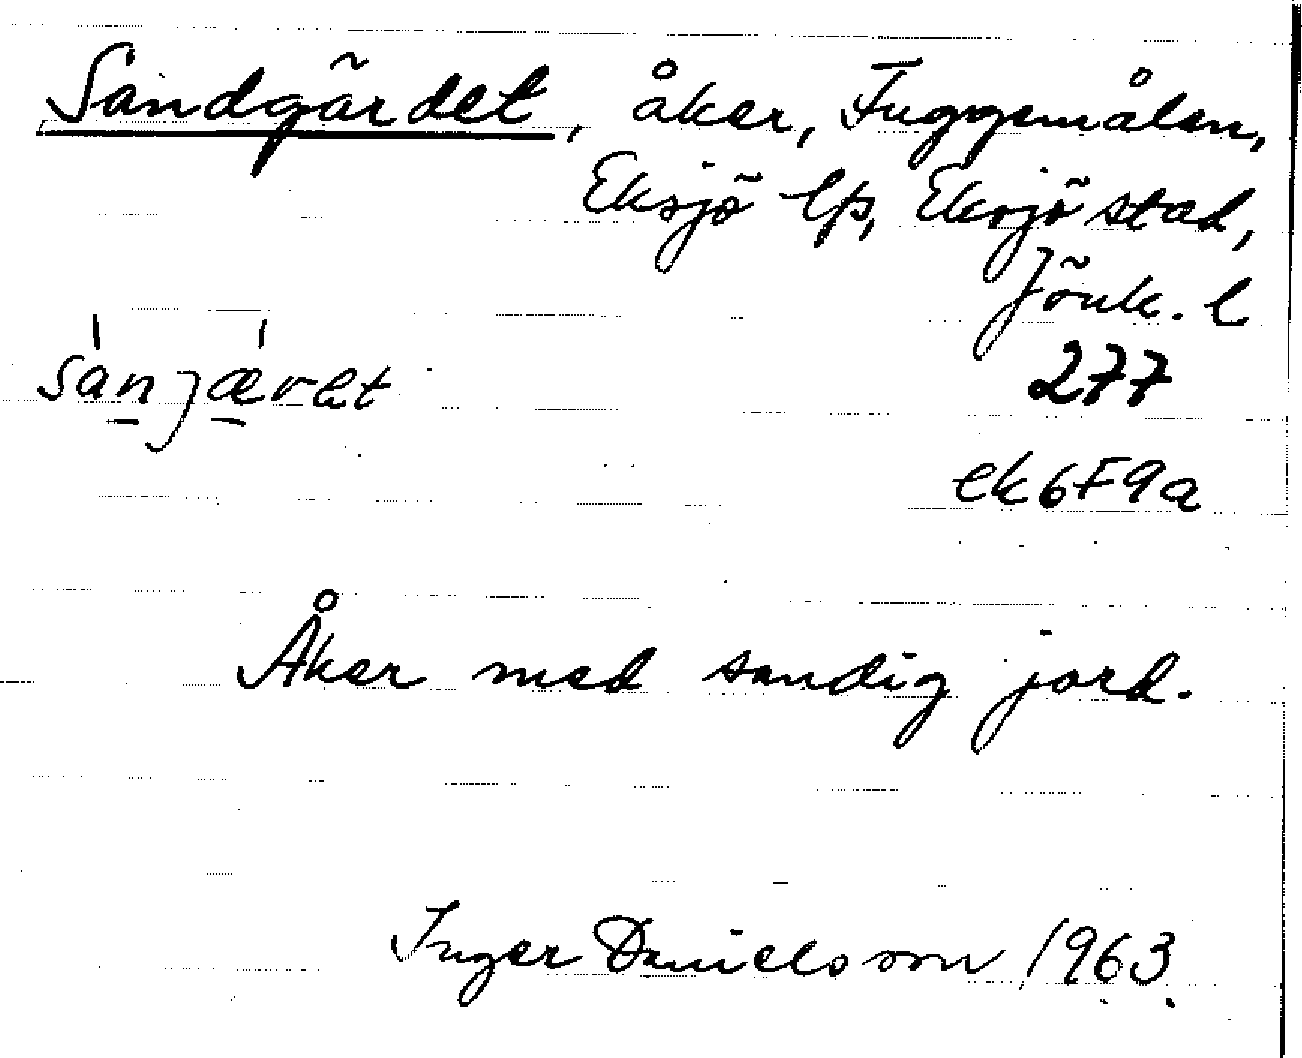 Sandgärdet, åker, Fuggemålen,
Eksjö lfs, Eksjö stad,
Jönk. l
sanjæret
277
ek6F9a
Åker med sandig jord.
Inger Danielsson 1963.